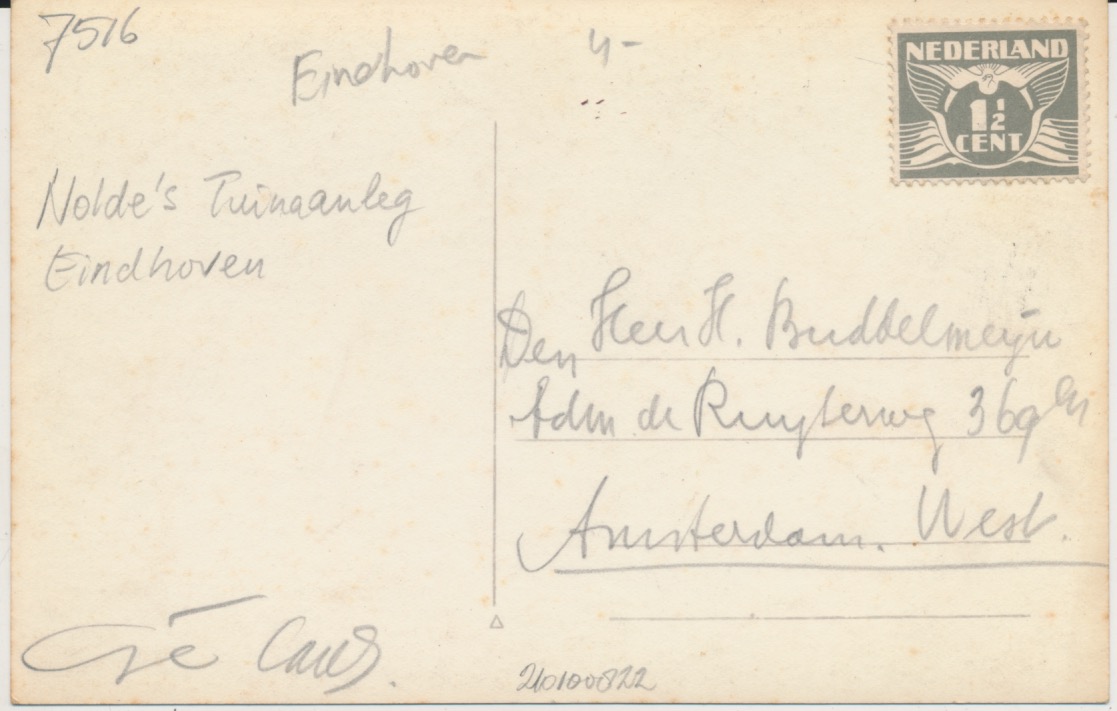 7516
Eindhoven
4-
NEDERLAND
1 1/2
CENT
Nolde's Tuinaanleg
Eindhoven
Den Heer H. Buddelmeijer
Adm de Ruyterweg 369
Amsterdam. West.
Gé
210100822